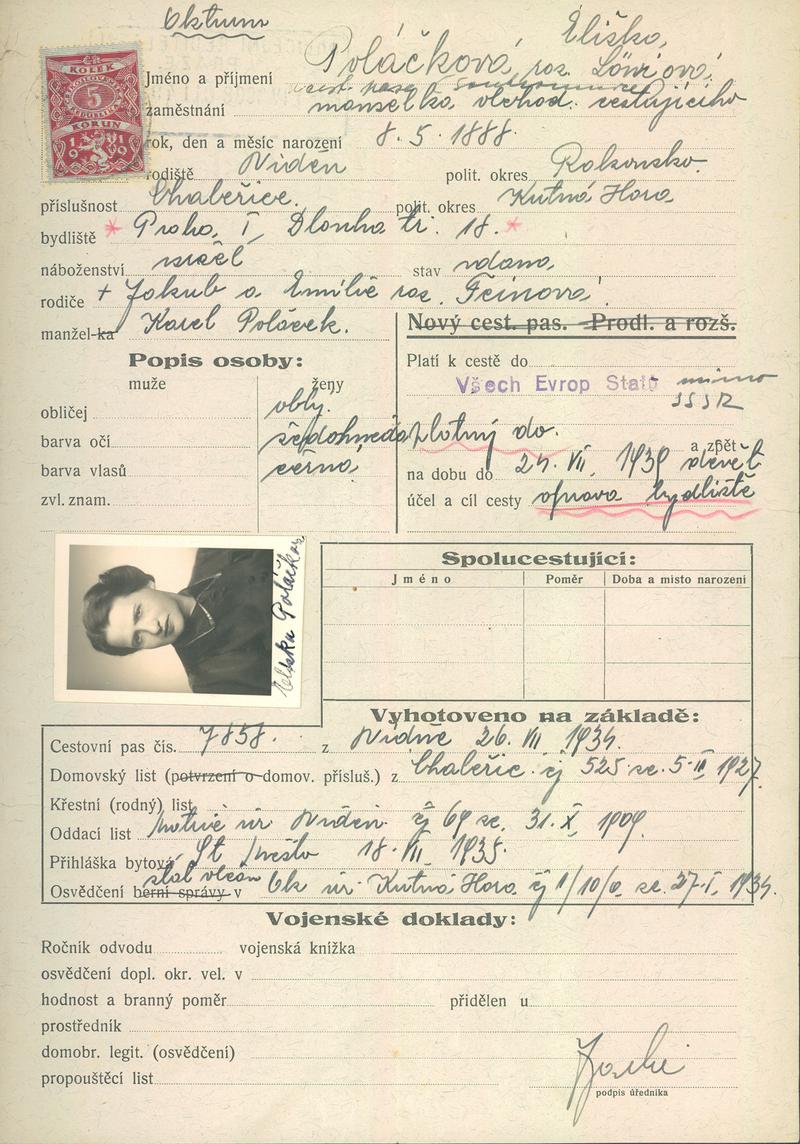 Č.S.
KOLEK
5
KORUN
19 19
Eliška
Jméno a příjmení Poláčková, roz. Löwiová.
zaměstnání manželka obchod. cestujícího
rok, den a měsíc narození 8. 5. 1888.
rodiště Vídeň polit. okres Rakousko.
příslušnost Chabeřice. polit. okres Kutná Hora
bydliště * Praha, I, Dlouhá tř. 18. *
náboženství israel stav vdana
rodiče + Jakub a Emilie roz. Feinová.
manžel-ka Karel Poláček.
Nový cest. pas. Prodl. a rozš.
Popis osoby:
muže ženy
obličej oblý.
barva očí šedohnědá
barva vlasů černá
zvl. znam.
Platí k cestě do
Všech Evrop Států mimo
SSSR
platný do. a zpět
na dobu do 24. VII. 1939
účel a cíl cesty oprava bydliště
Eliška Poláčková
Spolucestující:
Jméno Poměr Doba a misto narození
Vyhotoveno na základě:
Cestovní pas čís. 7858. z Vídně 26. VII. 1934.
Domovský list (potvrzení o domov. přísluš.) z Chabeřic. čj 525 ze 5. 1927.
Křestní (rodný) list
Oddací list Matrič úř Vídeň čj 69 ze. 31. X. 1909.
Přihláška bytová St. Město 18. VII. 1935.
Osvědčení berní správy v stát občan Ok úř. Kutná Hora čj 1/10/ ze. 27. I. 1934.
Vojenské doklady:
Ročník odvodu vojenská knížka
osvědčení dopl. okr. vel. v
hodnost a branný poměr přidělen u
prostředník
domobr. legit. (osvědčení)
propouštěcí list
podpis úředníka